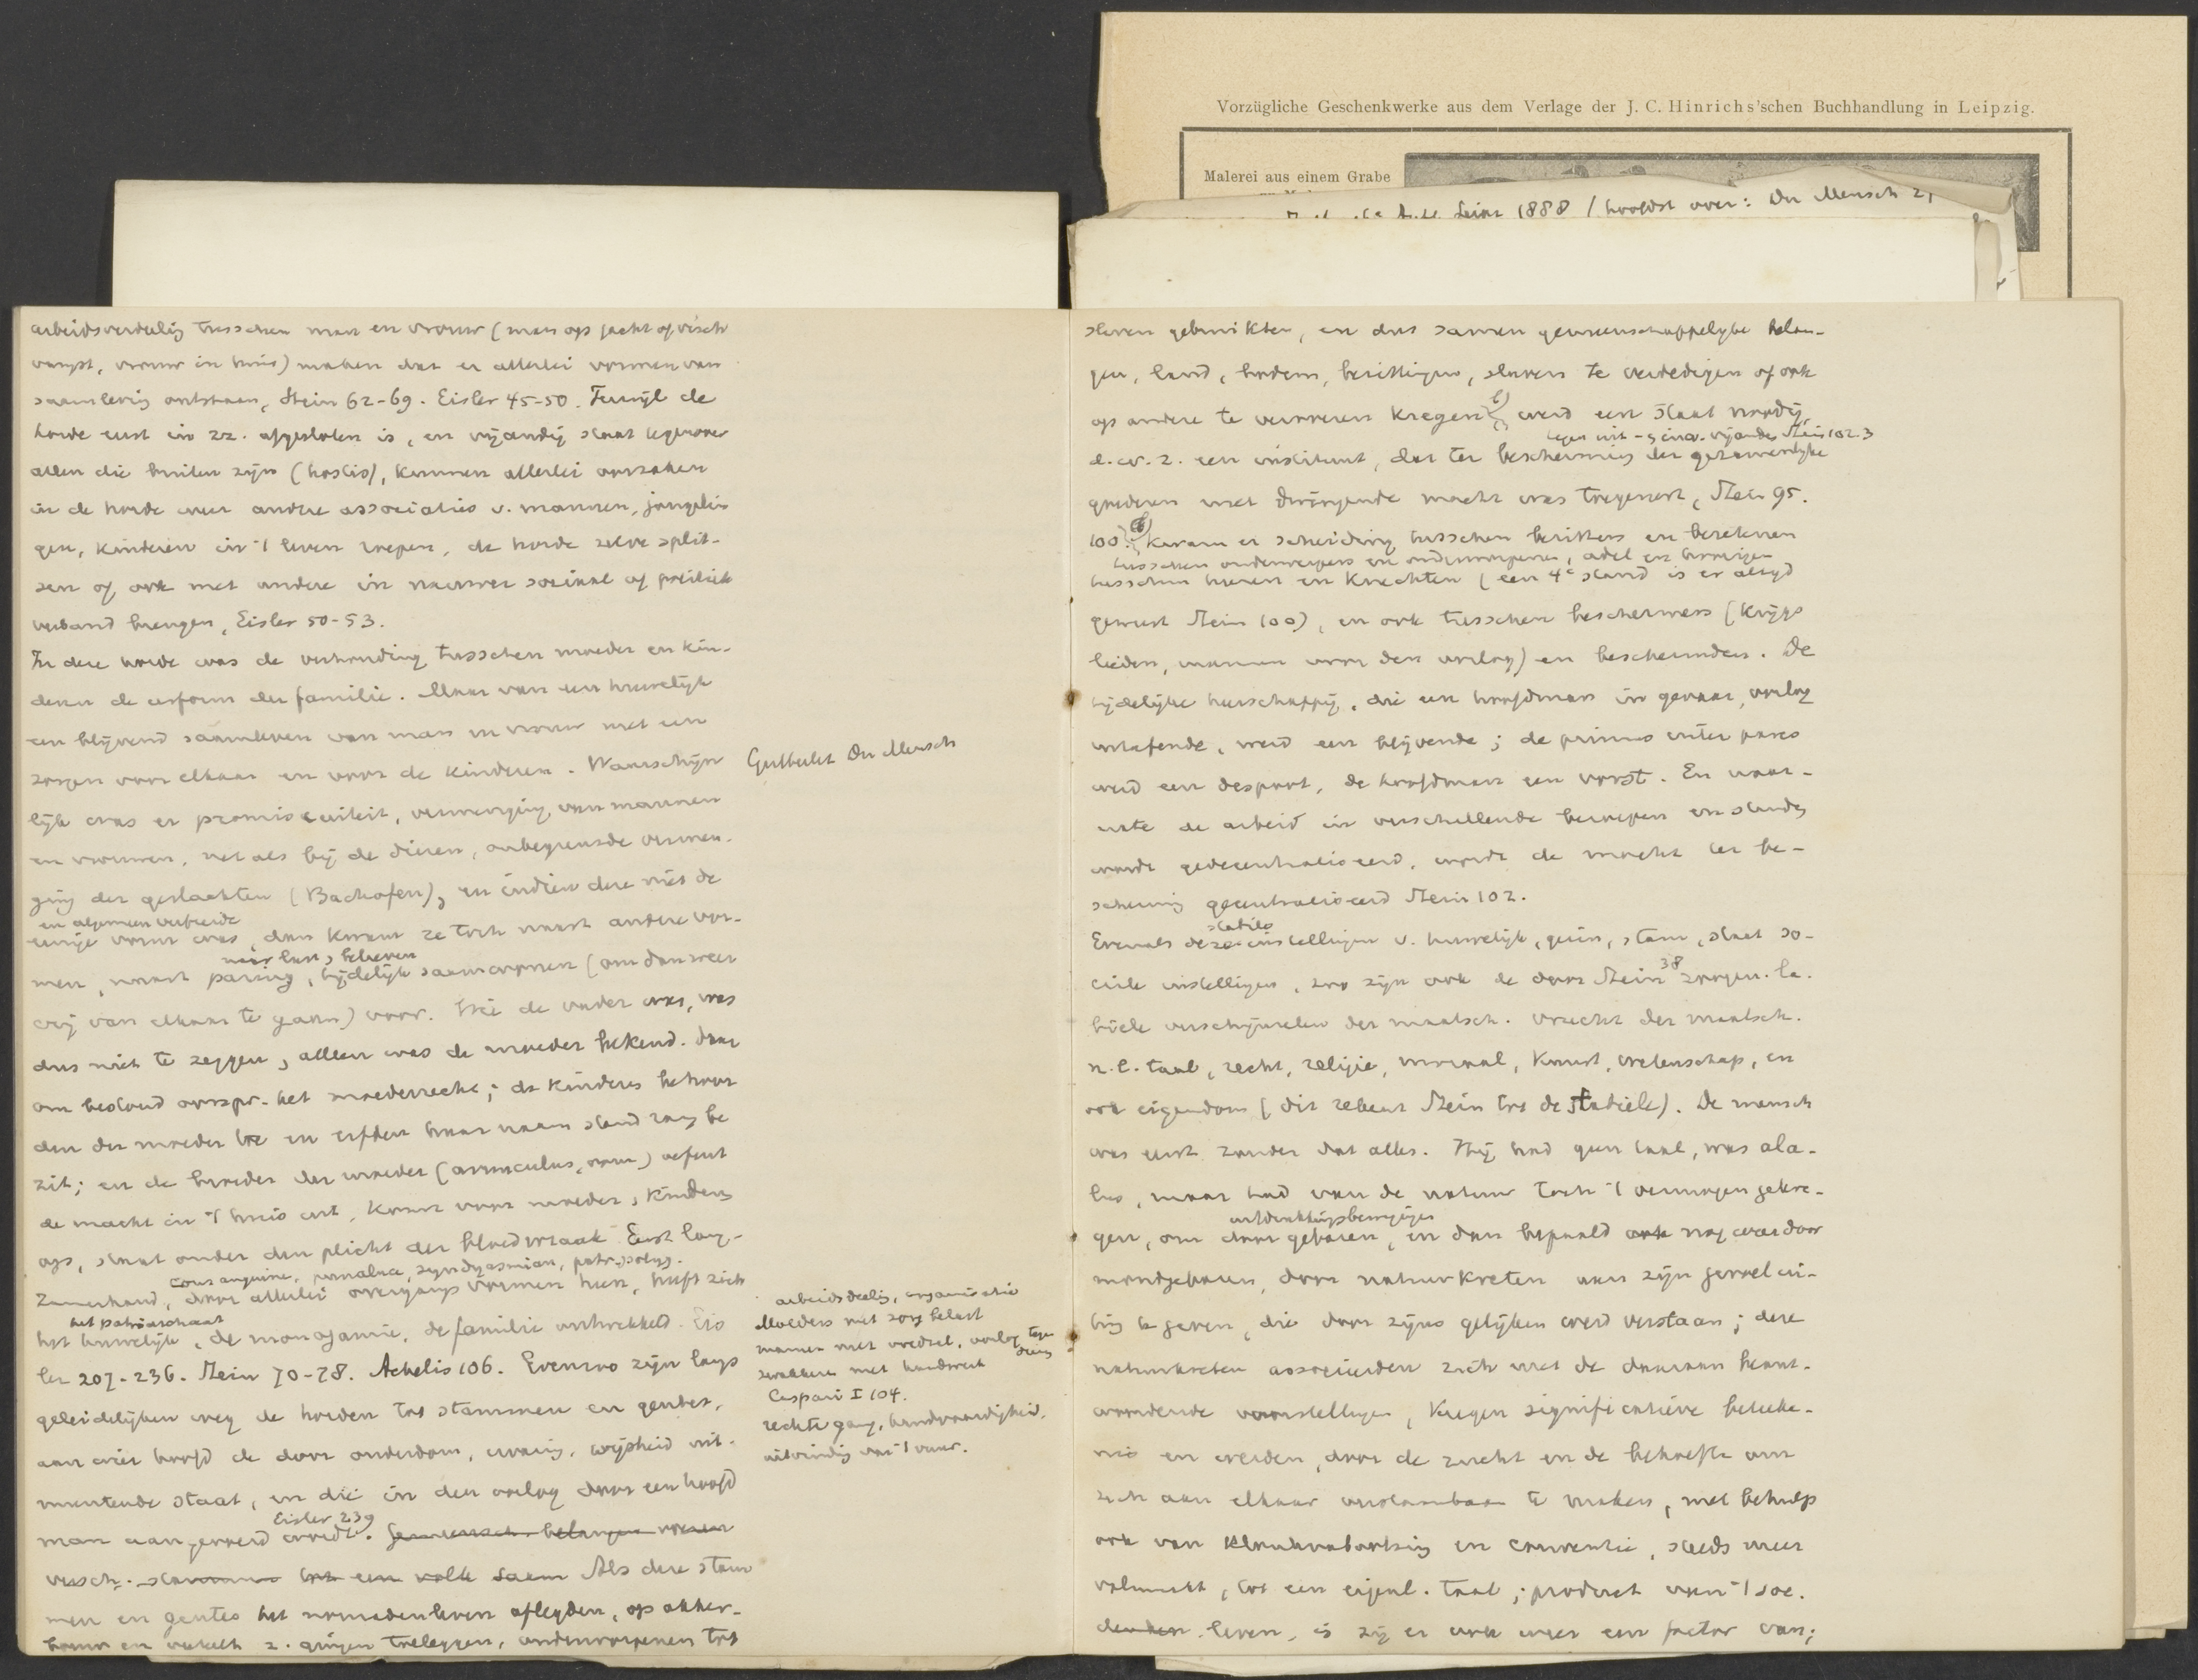 Vorzügliche Geschenkwerke aus dem Verlage der J. C. Hinrichs'schen Buchhandlung in Leipzig.
Malerei aus einem Grabe
1888 / hoofdst over: Der Mensch
arbeidsverdeelig tusschen man en vrouw (man op jacht of visch
vangst, vrouw in huis) maken dat er allerlei vormen van
saamlevig ontstaan, Stein 62-69. Eisler 45-50. Terwijl de
horde eerst in zz. afgesloten is, en vijandig staat tegenover
allen die buiten zijn (hostis), kunnen allerlei oorzaken
in de horde weer andere associaties v. mannen, jongelin
gen, kinderen in 't leven roepen, de horde zelve split-
sen of ook met andere in nauwer sociaal of politiek
verband brengen, Eisler 50-53.
In deze horde was de verhouding tusschen moeder en kin-
deren de oerform der familie. Maar van een huwelijk
een blijvend saamleven van man en vrouw met een
zorgen voor elkaar en voor de kinderen. Waarschijn
lijk was er promiscuiteit, vermenging van mannen
en vrouwen, net als bij de dieren, onbegrensde vermen-
ging der geslachten (Bachofen), en indien deze niet de
en algemeen verbreide
eenige vorm was, dan kwam ze toch naast andere vor-
naar lust, believen
men, naast paring, tijdelijk saamwonen (om dan weer
weg van elkaar te gaan) voor. Wie de vader was, was
dus niet te zeggen, alleen was de moeder bekend. Daar
om bestond oorspr. het moederrecht; de kinders behoor
den der moeder toe en erfden haar naam stand rang be
zit; en de broeder der moeder (avunculus, oom) oefent
de macht in 't huis uit, komt voor moeder, kinders
op, staat onder den plicht der bloedwraak. Eerst lang-
consanguine, punalua, syndyasmian, patr. polyg.
zamerhand, door allerlei overgangsvormen heen, heeft zich
het patriarchaat
het huwelijk, de monogamie, de familie ontwikkeld. Eis
ler 207-236. Stein 70-78. Achelis 106. Evenzoo zijn langs
geleidelijken weg de horden tot stammen en gentes,
aan wier hoofd de door ouderdom, ervarig, wijsheid uit-
muntende staat, en die in den oorlog door een hoofd
Eisler 239
man aangevoerd wordt. Gemeensch. belangen
versch. stammen tot een volk saam Als deze stam
men en gentes het nomadenleven aflegden, op akker-
bouw en veeteelt z. gingen toeleggen, onderworpenen tot
Gutberlet Der Mensch
arbeidsdeelig, organisatie
Moeders met zorg belast
mannen met voedsel, oorlog tegen
dieren
zwakkere met handwerk
Caspari I 104.
rechte gang, handvaardigheid,
uitvindig van 't vuur.
slaven gebruikten, en dus samen gemeenschappelijke belan-
gen, land, bodem, bezittingen, slaven te verdedigen of ook
op andere te veroveren kregen werd een staat noodig,
tegen uit- en inw. vijanden Stein 102.3
d.w.z. een instituut, dat ter bescherming der gezamenlijke
goederen met dwingende macht was toegerust, Stein 95.
100. Kwam er scheiding tusschen bezitters en bezetenen
tusschen onderwerpers en onderworpenen, adel en hoorigen
tusschen heeren en knechten (een 4e stand is er altijd
geweest Stein 100), en ook tusschen beschermers (krijgs
lieden, mannen voor den oorlog) en beschermden. De
tijdelijke heerschappij, die een hoofdman in gevaar, oorlog
uitoefende, werd een blijvende; de primus inter pares
werd een despoot, de hoofdman een vorst. En naar-
mate de arbeid in verschillende beroepen en standen
wordt gedecentraliseerd, wordt de macht ter be-
scherming gecentraliseerd Stein 102.
stabile
Evenals deze instellingen v. huwelijk, gezin, stam, staat so-
38
ciale instellingen, zoo zijn ook de door Stein zoogen. la-
biele verschijnselen der maatsch. vrucht der maatsch.
n.l. taal, recht, religie, moraal, kunst, wetenschap, en
ook eigendom (dit rekent Stein tot de stabiele). De mensch
was eerst zonder dat alles. Hij had geen taal, was ala-
lus, maar had van de natuur toch 't vermogen gekre-
uitdrukkingsbewegingen
gen, om door gebaren, en dan bepaald ook nog door
mondgebaren, door natuurkreten aan zijn gevoel ui-
ting te geven, die door zijns gelijken werd verstaan; deze
natuurkreten associeerden zich met de daaraan beant-
woordende voorstellingen, kregen significatieve beteeke-
nis en werden, door de zucht en de behoefte om
zich aan elkaar verstaanbaar te maken, met behulp
ook van klanknabootsing en conventie, steeds meer
volmaakt, tot een eigenl. taal; product van 't soc.
denken leven, is zij er ook weer een factor van;